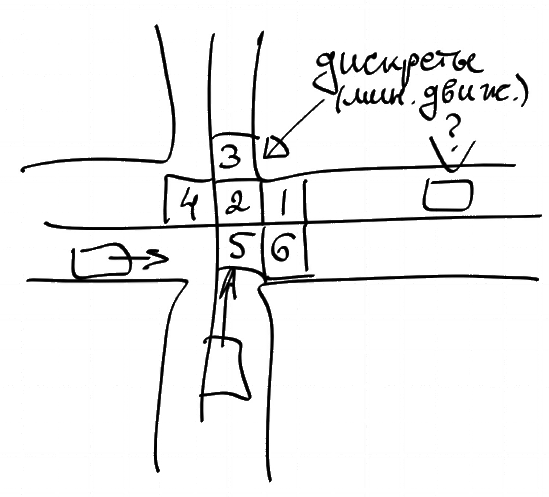 дискреты
(мин. движ.)
?
3
4 2 1
5 6